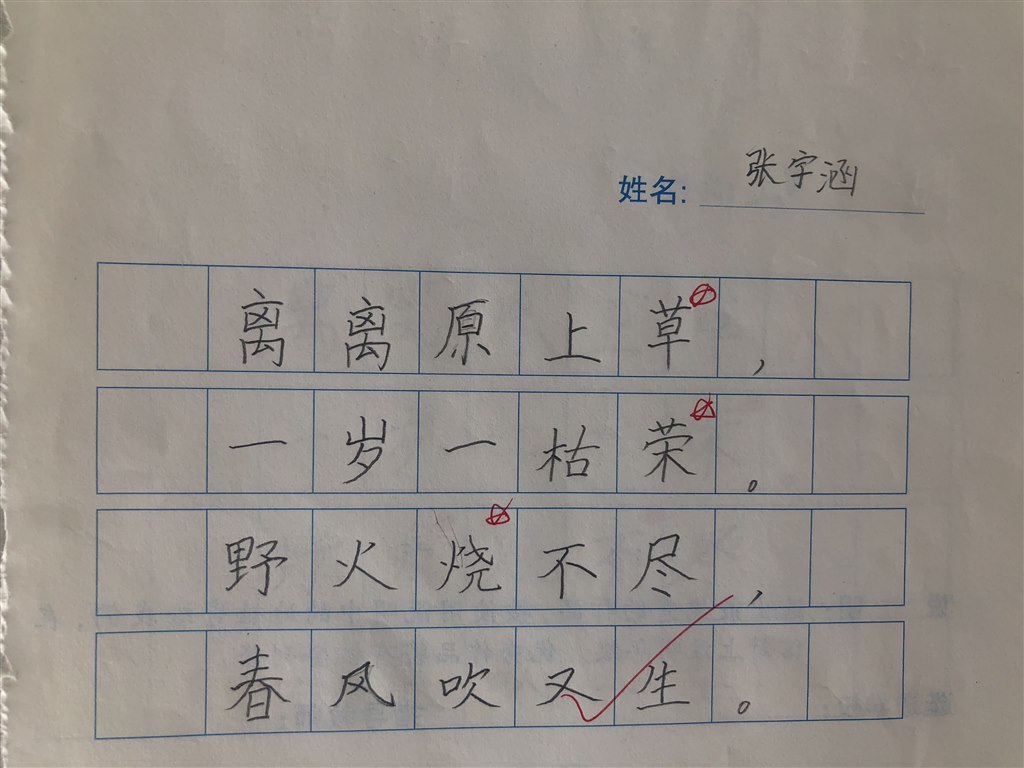 姓名: 张宇涵
离离原上草，
一岁一枯荣。
野火烧不尽，
春风吹又生。